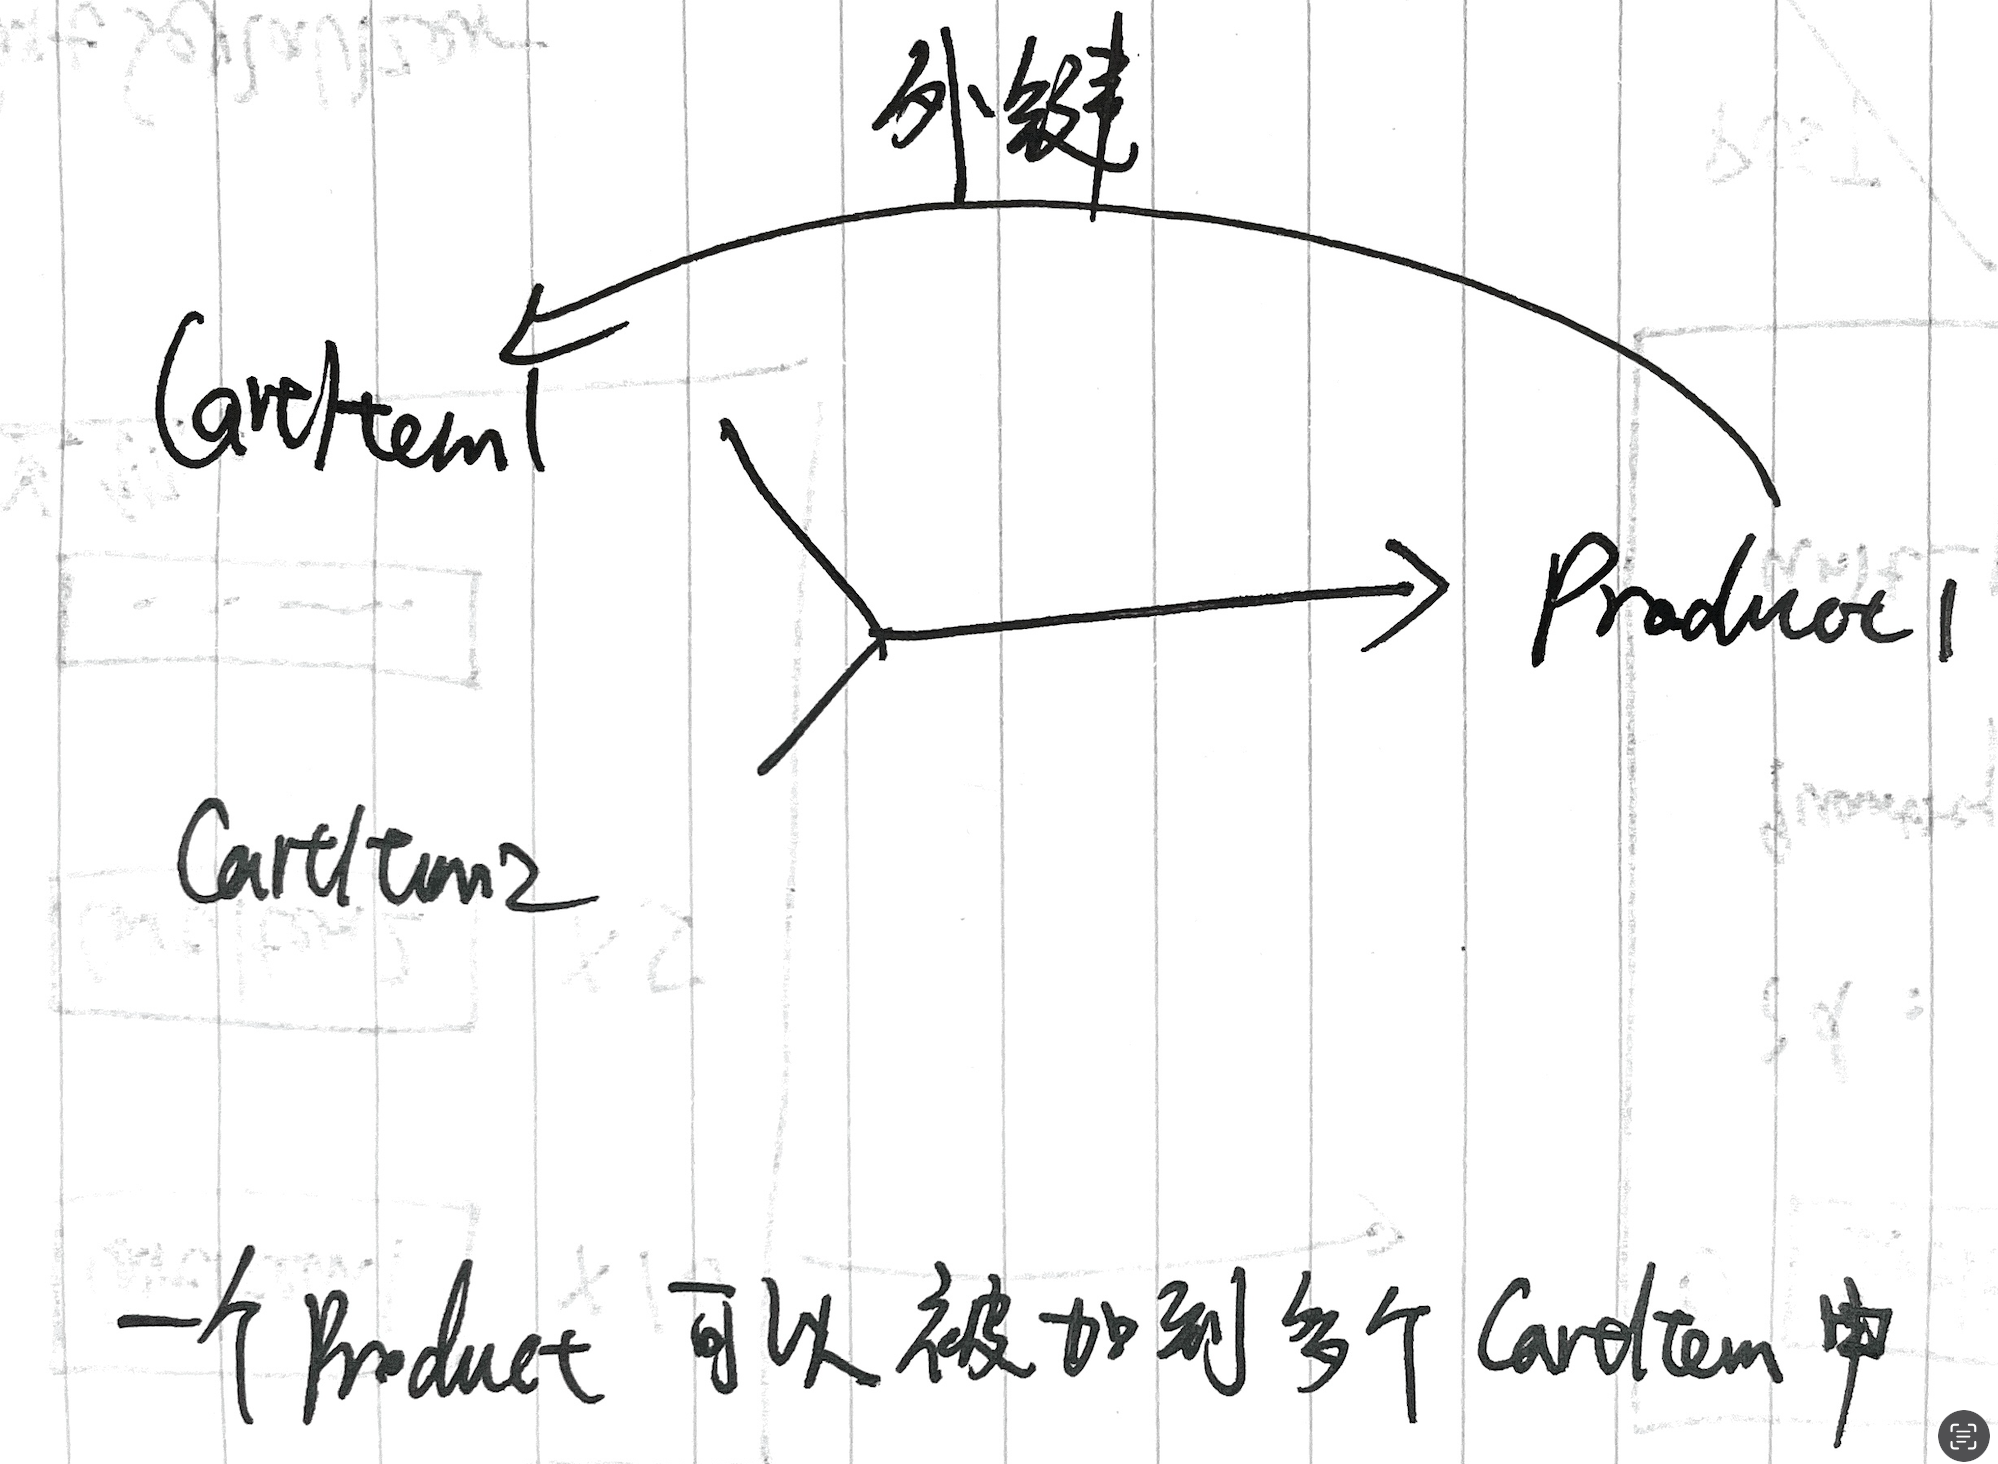 外键
CartItem1
Product1
CartItem2
一个 Product 可以被加到多个 CartItem 中